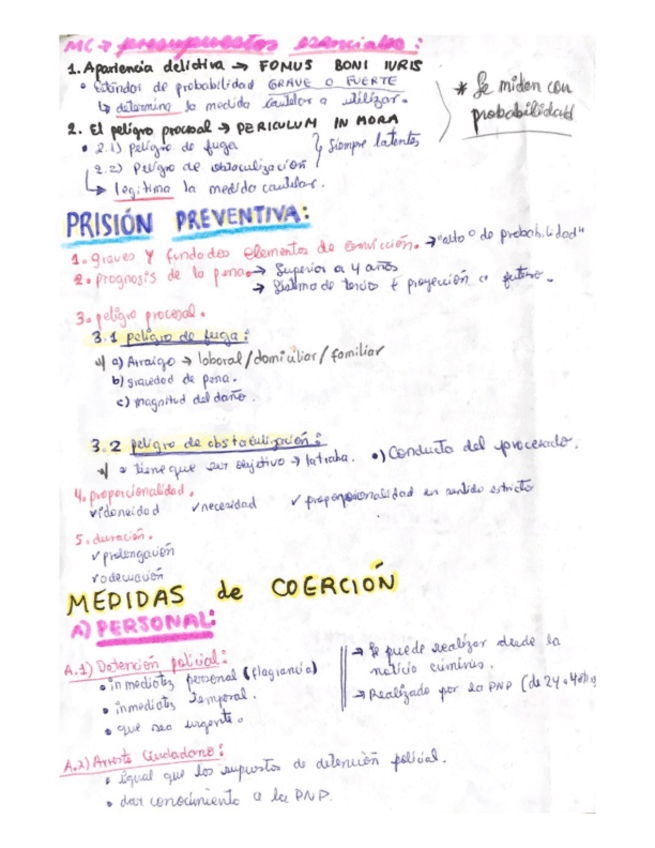 MC → presupuestos esenciales:
1. Apariencia delictiva → FOMUS BONI IURIS
• Estándar de probabilidad GRAVE O FUERTE
↳ determina la medida cautelar a utilizar.
* Se miden con probabilidad
2. El peligro procesal → PERICULUM IN MORA
• 2.1) peligro de fuga
2.2) Peligro de obstaculización
} Siempre latentes
↳ legitima la medida cautelar.
PRISIÓN PREVENTIVA:
1. graves y fundados elementos de convicción. → "alto ° de probabilidad"
2. prognosis de la pena → Superior a 4 años
→ Sistema de tercios + proyección a futuro.
3. peligro procesal.
3.1 peligro de fuga:
a) Arraigo → laboral/domiciliar/familiar
b) gravedad de pena.
c) magnitud del daño.
3.2 peligro de obstaculización:
• tiene que ser objetivo → la traba. •) Conducta del procesado.
4. proporcionalidad.
✓ idoneidad ✓ necesidad ✓ proporcionalidad en sentido estricto
5. duración.
✓ prolongación
✓ adecuación
MEDIDAS de COERCIÓN
A) PERSONAL:
A.1) Detención policial:
• inmediatez personal (flagrancia)
• inmediatez temporal.
• que sea urgente.
→ Se puede realizar desde la noticia criminis.
→ Realizado por la PNP (de 24 a 48h)
A.2) Arresto Ciudadano:
• igual que los supuestos de detención policial.
• dar conocimiento a la PNP.